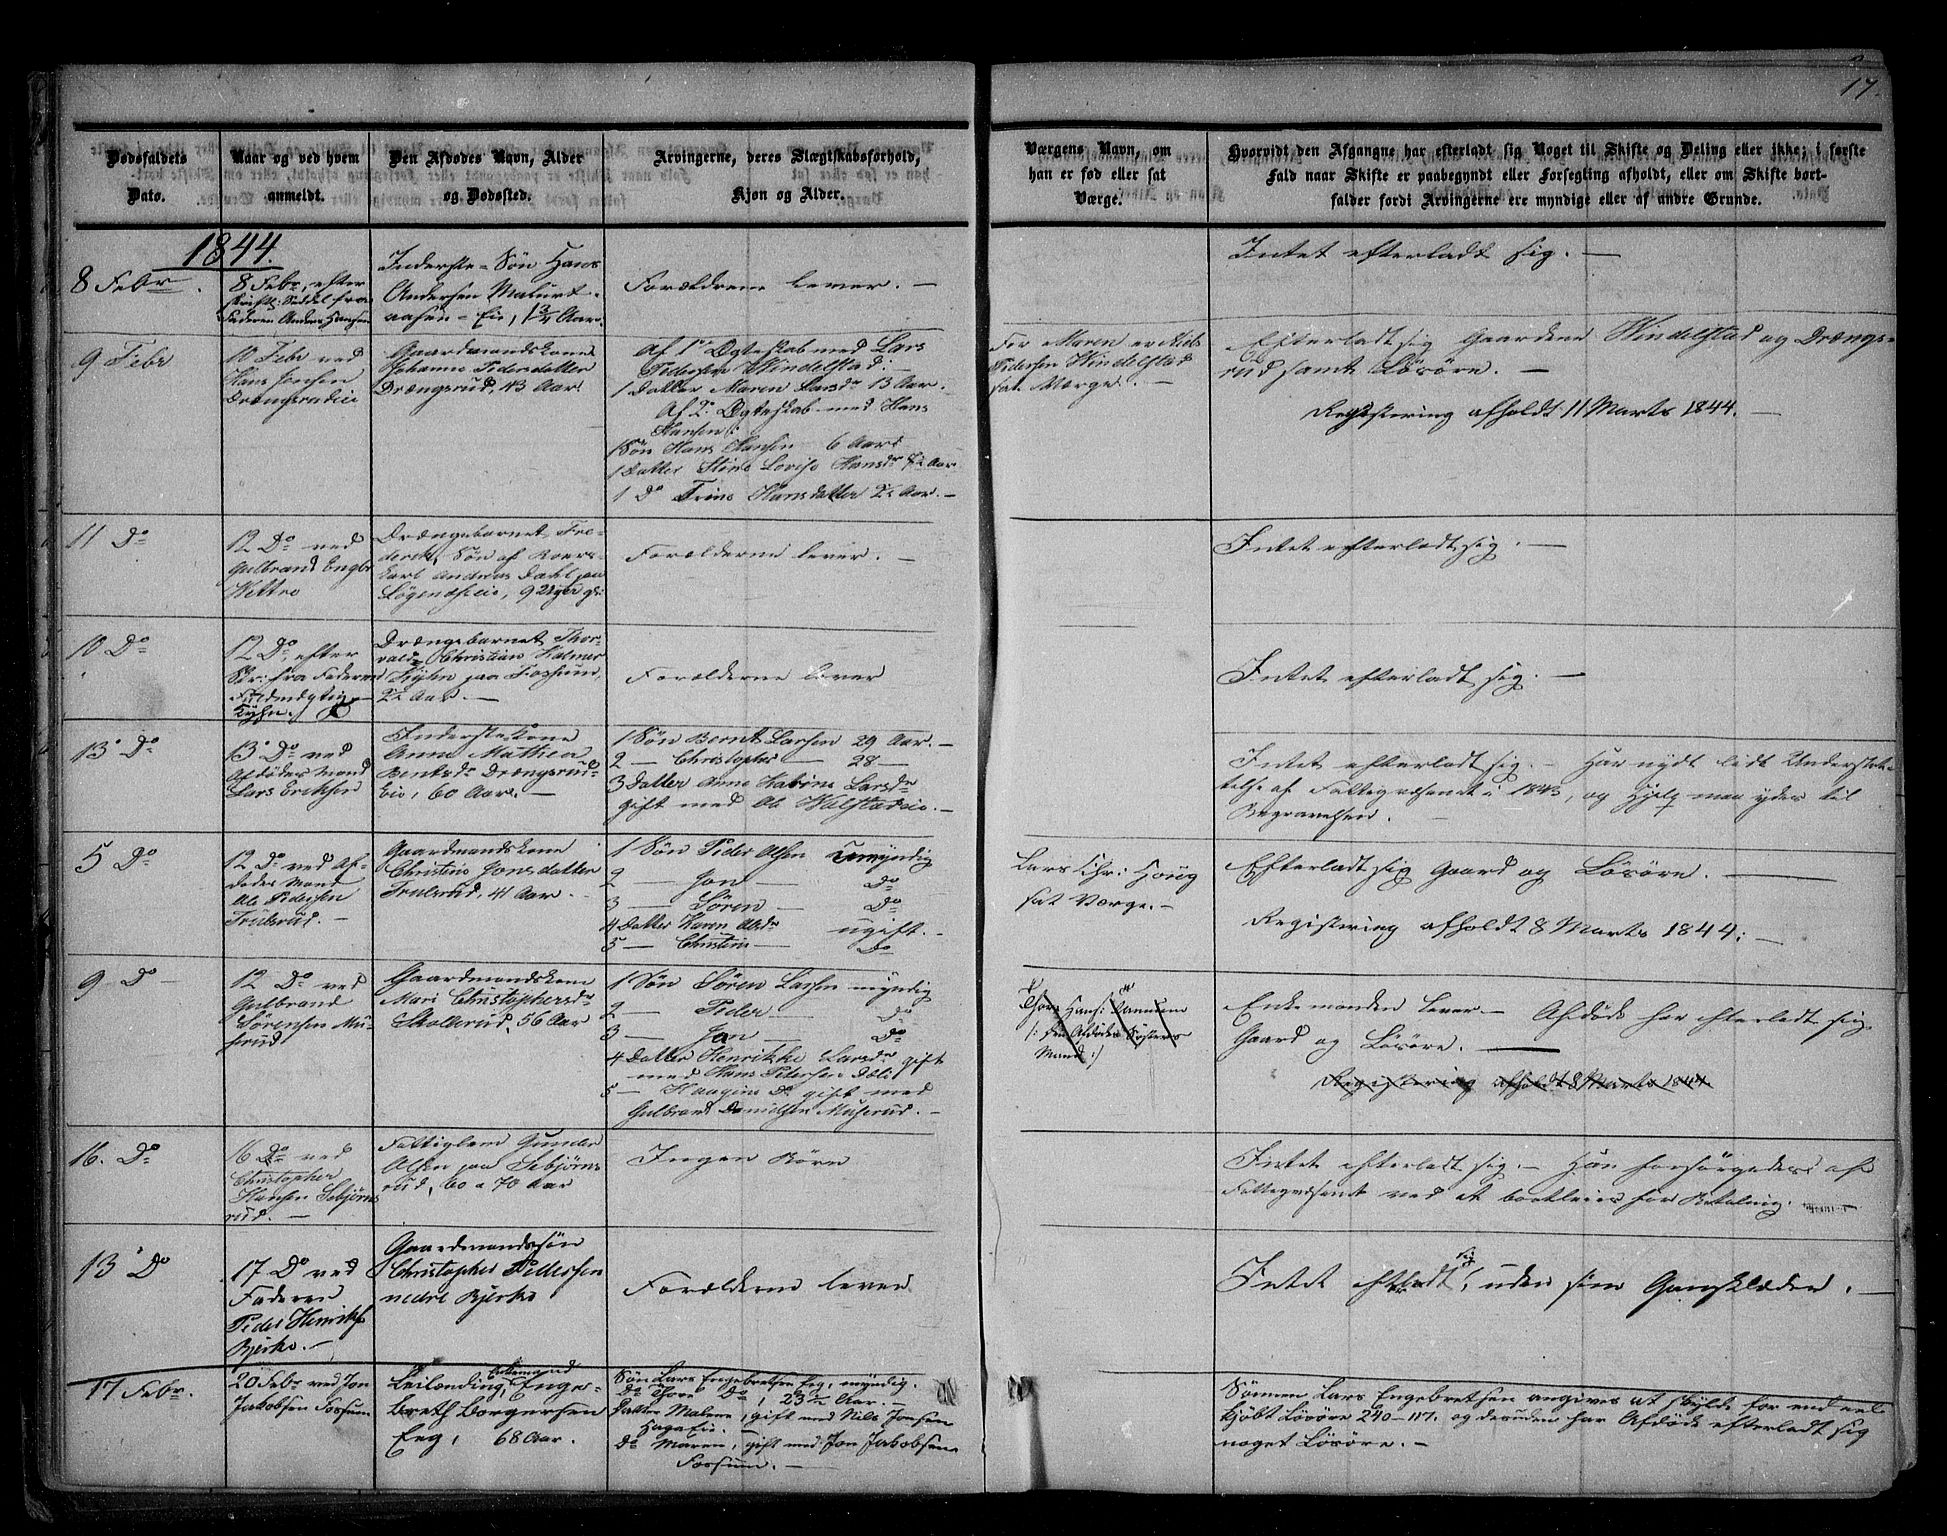 17.
Dødsfaldets
Dato.
Naar og ved hvem
anmeldt.
Den Afdødes Navn, Alder
og Dødssted.
Arvingerne, deres Slægtskabsforhold,
Kjøn og Alder.
Værgens Navn, om
han er fød eller sat
Værge.
Hvorvidt den Afgangne har efterladt sig Noget til Skifte og Deling eller ikke; i første
Fald naar Skifte er paabegyndt eller Forsegling afholdt, eller om Skifte bort-
falder fordi Arvingerne ere myndige eller af andre Grunde.
1844.
8 Febr.
8 Febr, efter
skriftl: Seddel fra
Faderen Anders Hansen
Inderste-Søn Hans
Andersen Malurt-
aasen-Eie, 1 3/4 Aar.
Forældrene lever. —
Intet efterladt sig. —
9 Febr
10 Febr ved
Hans Jensen
Drængsrudeie
Gaardmandskone
Johanne Pedersdatter
Drængsrud, 43 Aar.
Af 1ste Ægteskab med Lars
Pedersen Windelstad:
1 Datter Maren Larsdr 13 Aar.
Af 2. Ægteskab med Hans
Hansen:
1 Søn Hans Hansen 6 Aar
1 Datter Stine Lovise Hansdr Aar
1 Do Trine Hansdatter 2½ Aar. —
For Maren er Niels
Pedersen Windelstad
sat Værge. —
Efterladt sig Gaardene Windelstad og Drængs-
rud samt Løsøre. —
Registering afholdt 11 Marts 1844. —
11 Do
12 Do ved
Gulbrand Engbr
Wettre
Drængebarnet Fre-
derik, Søn af
Carl Andreas Dahl paa
Løgenæseie, 9 Uger gl:
Forælderne lever. —
Intet efterladt sig. —
10 Do
12 Do, efter
Skr: fra Faderen
Fuldmægtig
Kyhn.
Drængebarnet Thor-
vald Christian Halmer
Kyhn paa Fossum,
2½ Aar. —
Forælderne lever
Intet efterladt sig. —
13 Do
13 Do ved
Afdødes Mand
Lars Eriksen
Inderstekone
Anne Mathea
Berntsdr Drængsrud-
Eie, 60 Aar. —
1 Søn Bernt Larsen 29 Aar. —
2 — Christopher — 28 —
3 Datter Anne Katrine Larsdr
gift med Ole Wulstadeie. —
Intet efterladt sig. — Har nydt lidt Understøt-
telse af Fattigvæsenet i 1843, og Hjelp maa ydes til
Begravelsen.
5 Do
12 Do ved Af-
dødes Mand
Ole Pedersen
Trulsrud. —
Gaardmandskone
Christine Jonsdatter
Trulsrud, 41 Aar.
1 Søn Peder Olsen umyndig
2 — Jon — Do
3 — Søren — Do
4 Datter Karen Olsdr ugift. —
5 — Christine — Do
Lars Chr: Houg
sat Værge. —
Efterladt sig Gaard og Løsøre. —
Registering afholdt 8 Marts 1844. —
9 Do
12 Do ved
Gulbrand
Sørensen Mu-
serud
Gaardmandskone
Mari Christophersdr
Skollerud, 56 Aar
1 Søn Søren Larsen myndig
2 — Peder — Do
3 — Jon — Do
4 Datter Henrikke Larsdr gift
med Hans Pedersen Dæli
5 — Haagine Do gift med
Gulbrand Danielsen Muserud. —
Thor Hans:
/: den Afdødes Søsters
Mand :/
Enkemanden lever. — Afdøde har efterladt sig
Gaard og Løsøre. —
Registering afholdt 8 Marts 1844.
16. Do
16 Do ved
Christopher
Hansen Sebjørns
rud. —
Fattiglem Gunder
Olsen paa Sebjørns
rud, 60 a 70 Aar
Ingen Børn
Intet efterladt sig. — Han forsørgedes af
Fattigvæsenet ved at bortleies for Betaling. —
13 Do
17 Do ved
Faderen
Peder Henriks
Bjerke. —
Gaardmandssøn
Christopher Pedersen
nedre Bjerke
Forælderne lever
Intet efterladt sig, uden sine Gangklæder. —
17 Febr.
20 Febr ved Jon
Jakobsen Fossum
Leilænding, Enkemand Enge-
breth Borgersen
Eeg, 68 Aar.
Søn Lars Engebretsen Eeg, myndig.
Do Thore Do, 23½ Aar. —
Datter Malene, gift med Nils Jonsen
Hageeie. —
Do Maren, gift med Jon Jakobsen
Fossum. —
Sønnen Lars Engebrethsen angives at skylde for ved
kjøbt Løsøre 240-117. og desuden har Afdøde efterladt sig
noget Løsøre. —